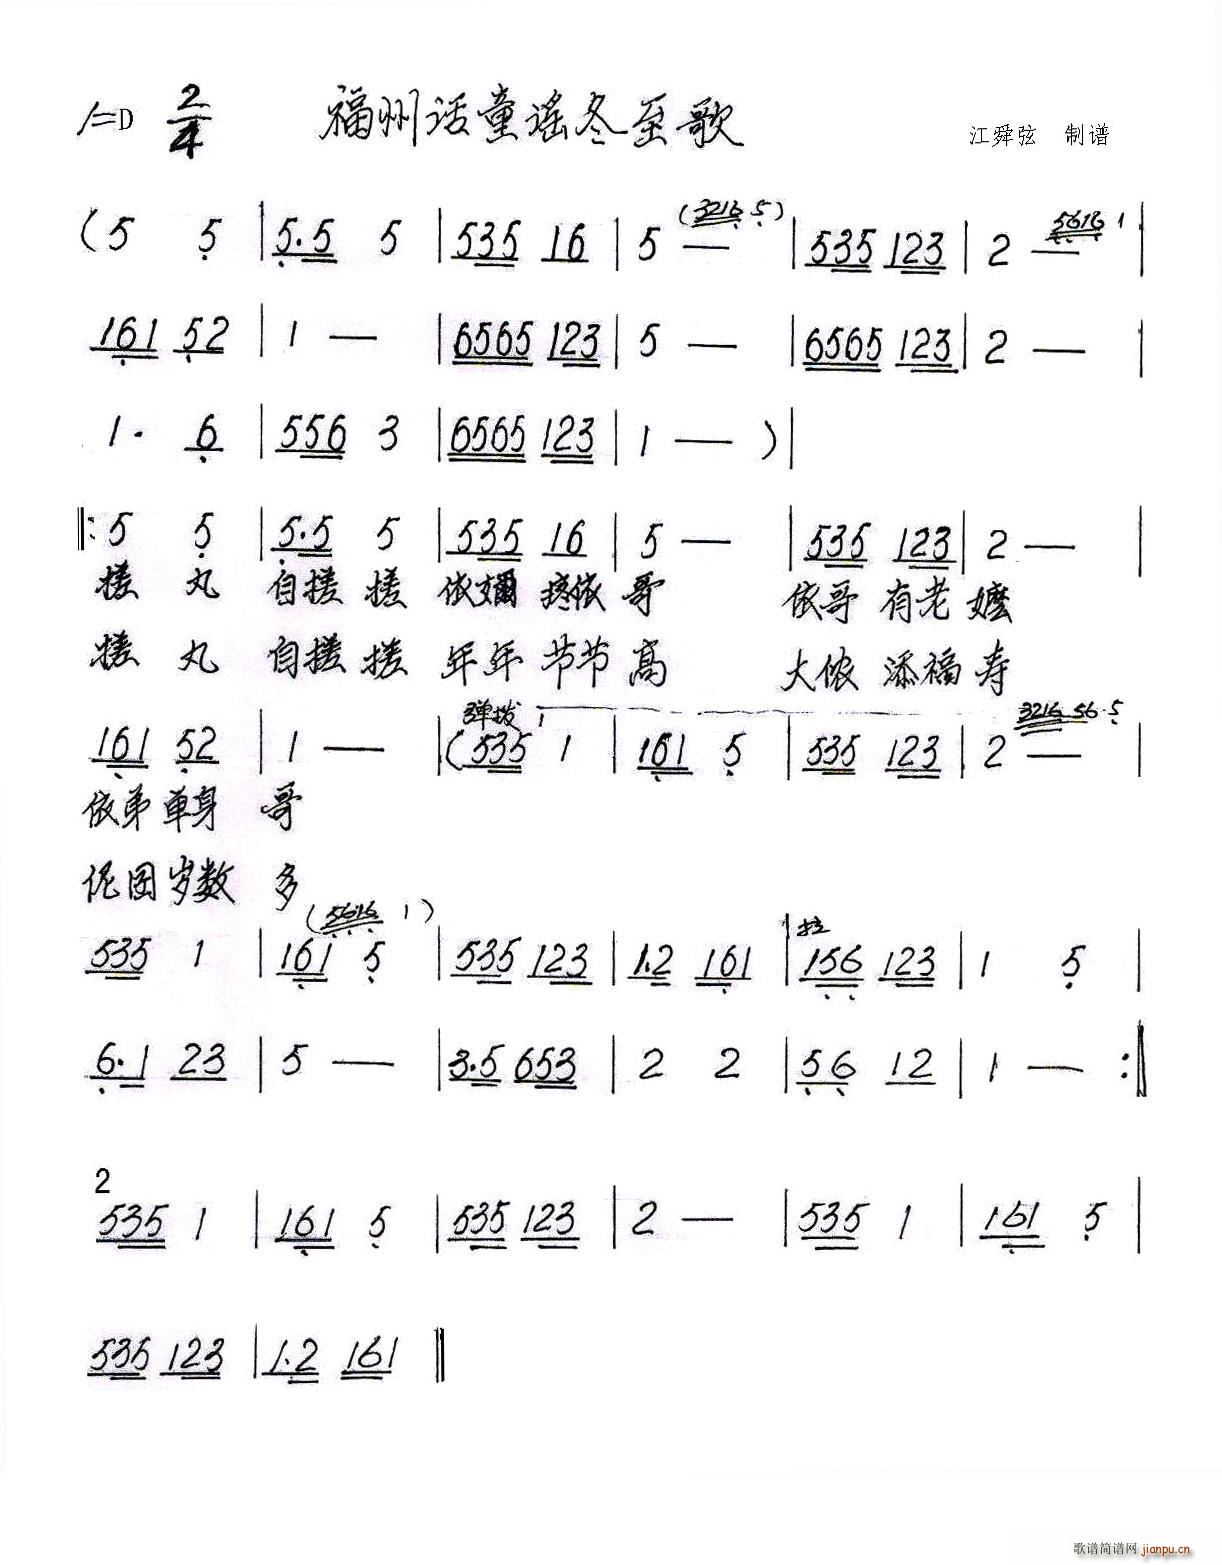 1=D 2/4 福州话童谣冬至歌
江舜弦 制谱
(3216 5) 5616 1
(5 5 | 5.5 5 | 535 16 | 5 — | 535 123 | 2 — |
161 52 | 1 — | 6565 123 | 5 — | 6565 123 | 2 — |
1. 6 | 556 3 | 6565 123 | 1 — ) |
‖: 5 5 | 5.5 5 | 535 16 | 5 — | 535 123 | 2 — |
搓 丸 自搓 搓 依㜷 疼依 哥 依哥 有老 嬷
搓 丸 自搓 搓 年年 节节 高 大侬 添福 寿
弹拨 3216 56.5
161 52 | 1 — | (535 1 | 161 5 | 535 123 | 2 — |
依弟 单身 哥
伲囝 岁数 多
(5616 1) 拉
535 1 | 161 5 | 535 123 | 1.2 161 | 156 123 | 1 5 |
6.1 23 | 5 — | 3.5 653 | 2 2 | 56 12 | 1 — :‖
2
535 1 | 161 5 | 535 123 | 2 — | 535 1 | 161 5 |
535 123 | 1.2 161 ‖
歌谱简谱网 jianpu.cn